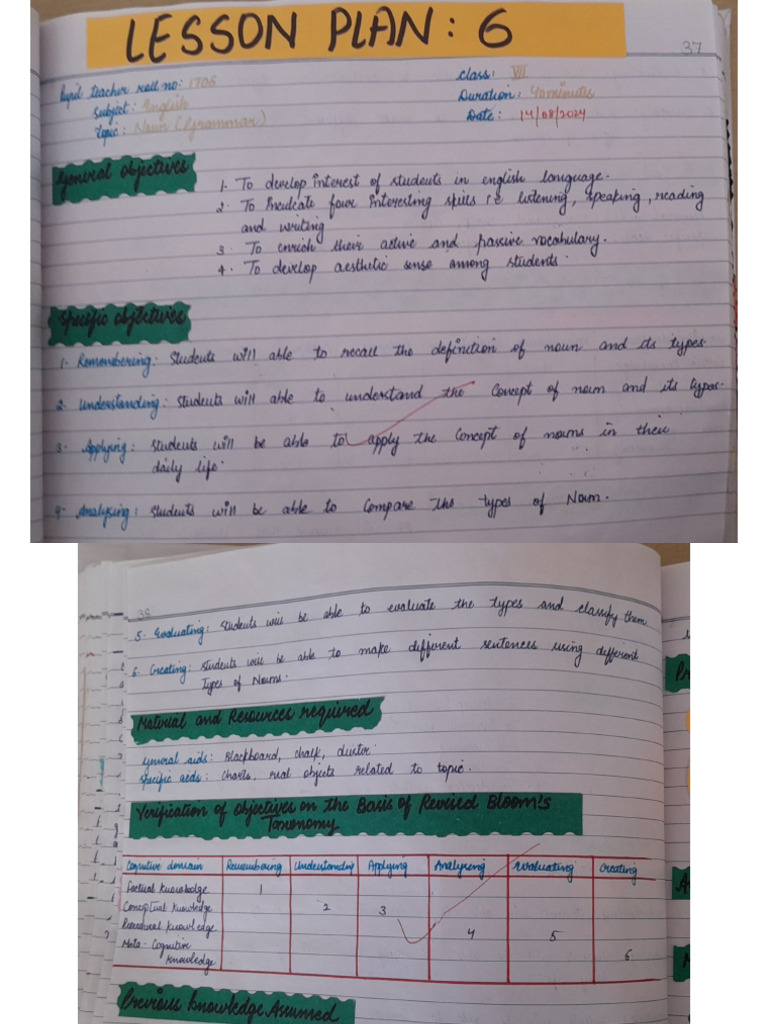 LESSON PLAN: 6
37
Pupil teacher roll no: 1706
Class: VII
Subject: English
Duration: 40 minutes
Topic: Noun (Grammar)
Date: 14/08/2024
General objectives
1. To develop interest of students in english language.
2. To Inculcate four interesting skills i.e listening, speaking, reading
and writing
3. To enrich their active and passive vocabulary.
4. To develop aesthetic sense among students.
Specific objectives
1. Remembering: Students will able to recall the definition of noun and its types.
2. Understanding: Students will able to understand the concept of noun and its types.
3. Applying: Students will be able to apply the concept of nouns in their
daily life.
4. Analysing: Students will be able to compare the types of Noun.
38
5. Evaluating: Students will be able to evaluate the types and classify them
6. Creating: Students will be able to make different sentences using different
types of Nouns.
Material and Resources required
General aids: Blackboard, chalk, duster.
Specific aids: charts, real objects related to topic.
Verification of objectives on the Basis of Revised Bloom's
Taxonomy
Cognitive domain Remembering Understanding Applying Analysing Evaluating Creating
Factual knowledge 1
Conceptual knowledge 2 3
Procedural knowledge 4 5
Meta-Cognitive
knowledge 6
Previous knowledge Assumed